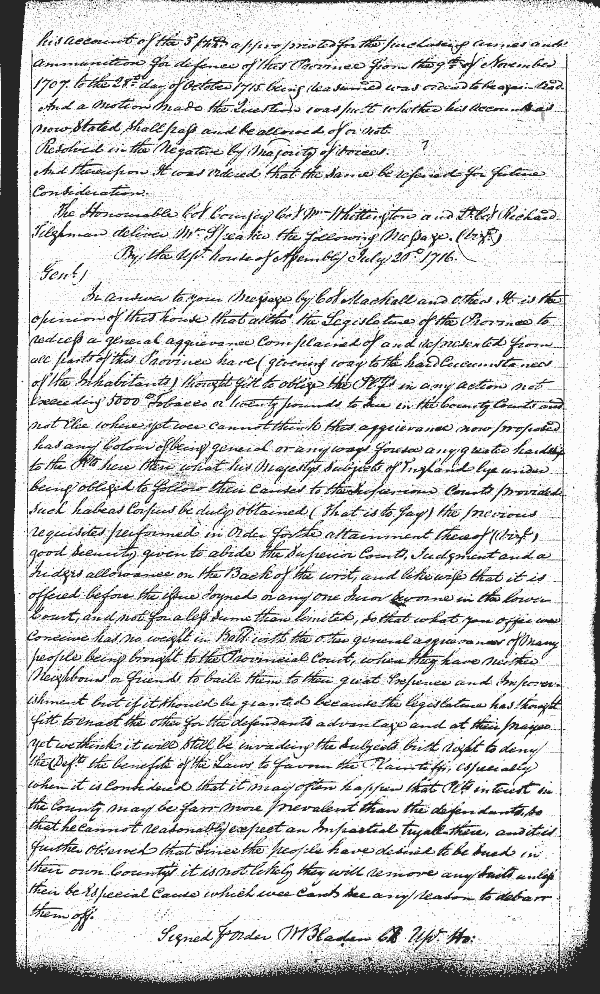 his account of the 3d p hhd appropriated for the purchasing armes and
ammunition for defence of this Province from the 9th of November
1707. to the 28th day of October 1715 being reassumed was ordered to be again Read
And a motion made the Question was put whether his account as
now Stated, Shall pass and be allowed of or not
Resolved in the Negative by Majority of voices.
And thereupon It was ordered that the same be referred for future
Consideration.
The Honourable Col Coursey Col Wm Whittington and Lt Col Richard
Tilghman deliver Mr Speaker the following Message. (vizt)
By the Upr. house of Assembly July 20th 1716.
Gent)
In answer to your Message by Col Mackall and others. It is the
opinion of this house that altho' the Legislature of the Province to
redress a general aggrievance Complained of and represented from
all parts of this Province have (giveing way to the hard Circumstances
of the Inhabitants) thought fitt to oblige the Pltfs in any action not
exceeding 5000 lb Tobacco or twenty pounds to Sue in the County Courts and
not Else where yet wee cannot think this aggrievance now proposed
has any Colour of being general or any ways foresee any greater hardship
to the Pltfs here then what his Majestys Subjects of England lye under
being obliged to follow their Causes to the Superiour Courts provided
Such habeas Corpus be duly obtained (That is to say) the previous
requisites performed in Order for the attainment thereof (vizt)
good Security given to abide the Superior Courts Judgment and a
Judges allowance on the Back of the writ, and likewise that it is
offered before the issue Joyned or any one Juror sworne in the lower
Court, and not for a less Summ than limited, so that what you offer we
conceive has no weight in Ball. with the other general aggrievances of Many
people being brought to the Provincial Court, where they have neither
Neighbours or friends to baile them to their great Expence and Impover-
ishment but if it should be granted because the legislature has thought
fitt to enact the other for the defendants advantage and at their prayer
yet we think it will Still be invading the Subjects birth right to deny
the Defts the benefits of the Laws to favour the Plaintiffs, especially
when it is Considered that it may often happen that Pltfs interest in
the County may be farr more prevalent than the defendants, so
that he cannot reasonably expect an Impartial tryall there, and it is
further Observed that Since the people have desired to be sued in
their own Countys it is not likely they will remove any Suits unless
their be Especial Cause which wee cant see any reason to debarr
them off.
Signed p Order W Bladen Cl. Upr. Ho: